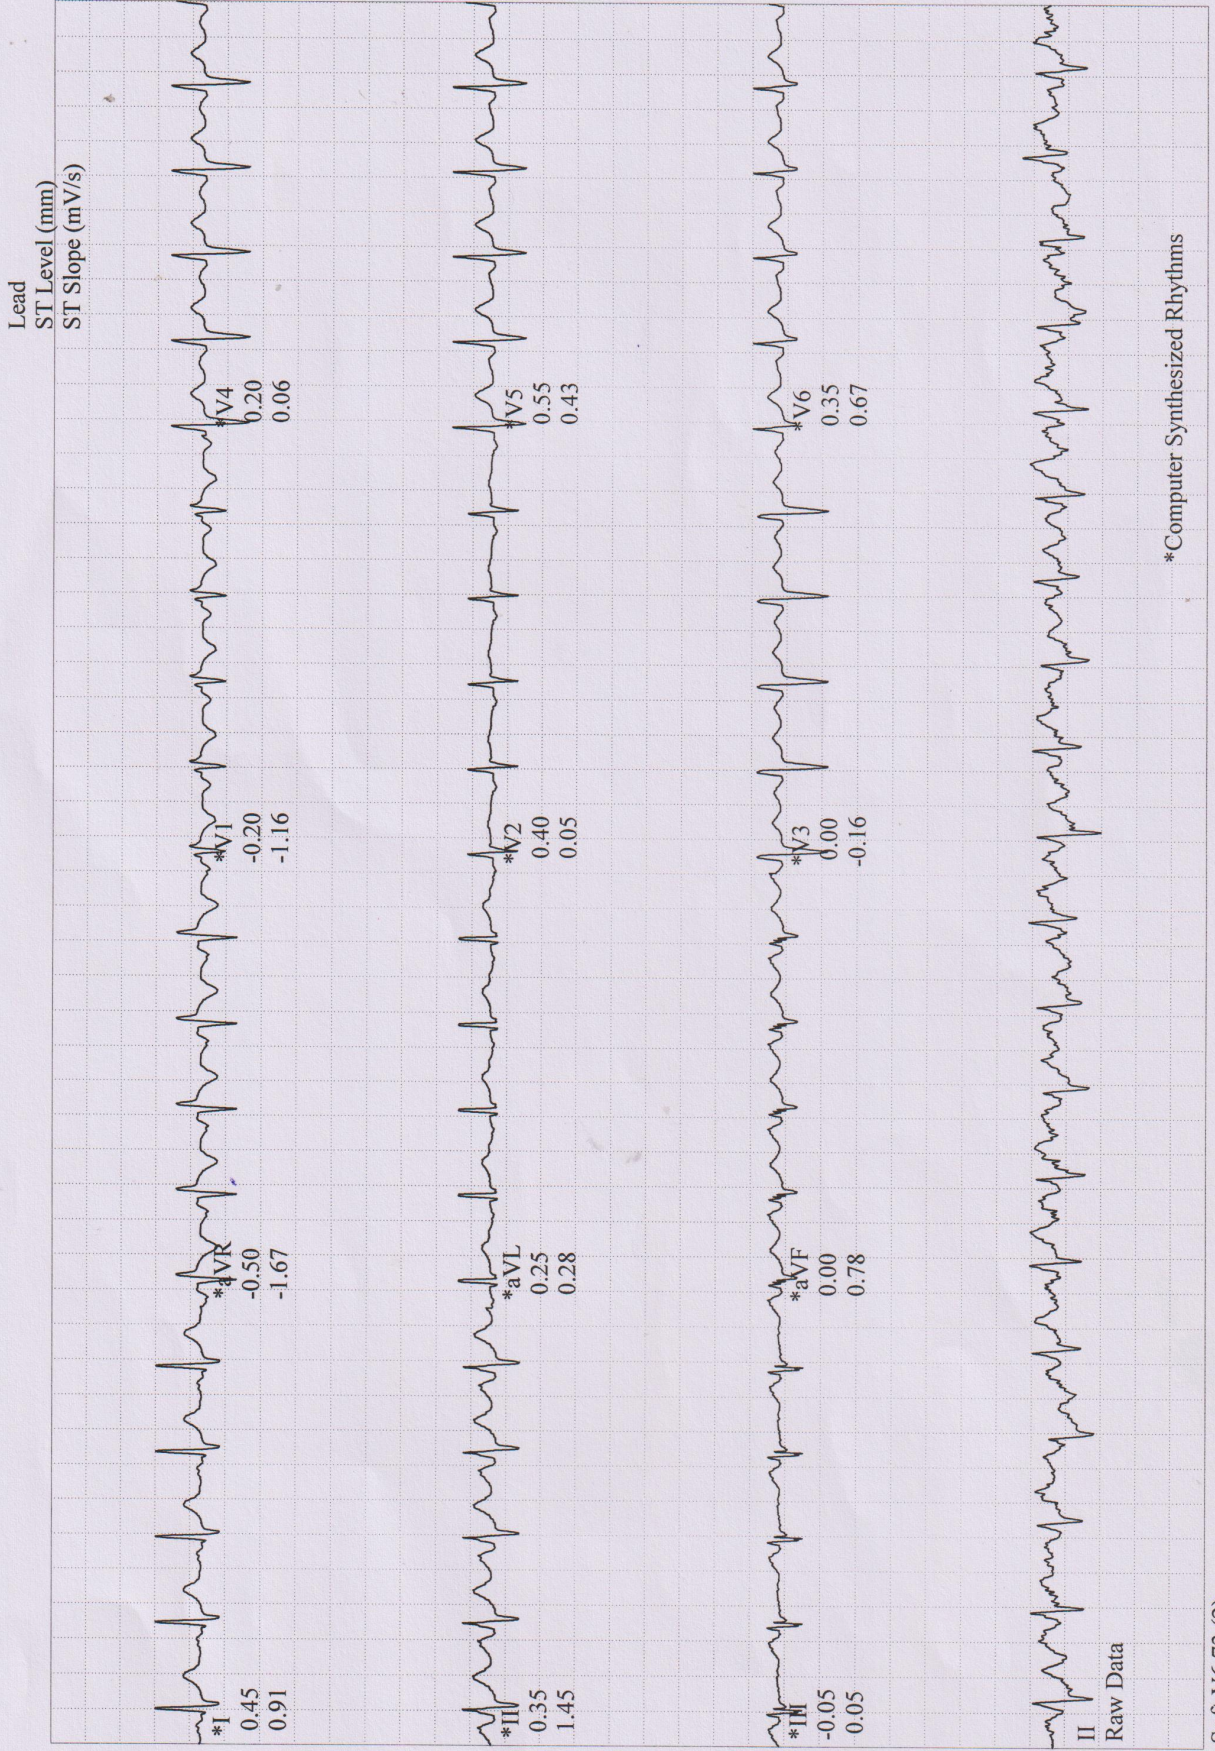 Lead
ST Level (mm)
ST Slope (mV/s)
*I
0.45
0.91
*aVR
-0.50
-1.67
*V1
-0.20
-1.16
*V4
0.20
0.06
*II
0.35
1.45
*aVL
0.25
0.28
*V2
0.40
0.05
*V5
0.55
0.43
*III
-0.05
0.05
*aVF
0.00
0.78
*V3
0.00
-0.16
*V6
0.35
0.67
II
Raw Data
*Computer Synthesized Rhythms